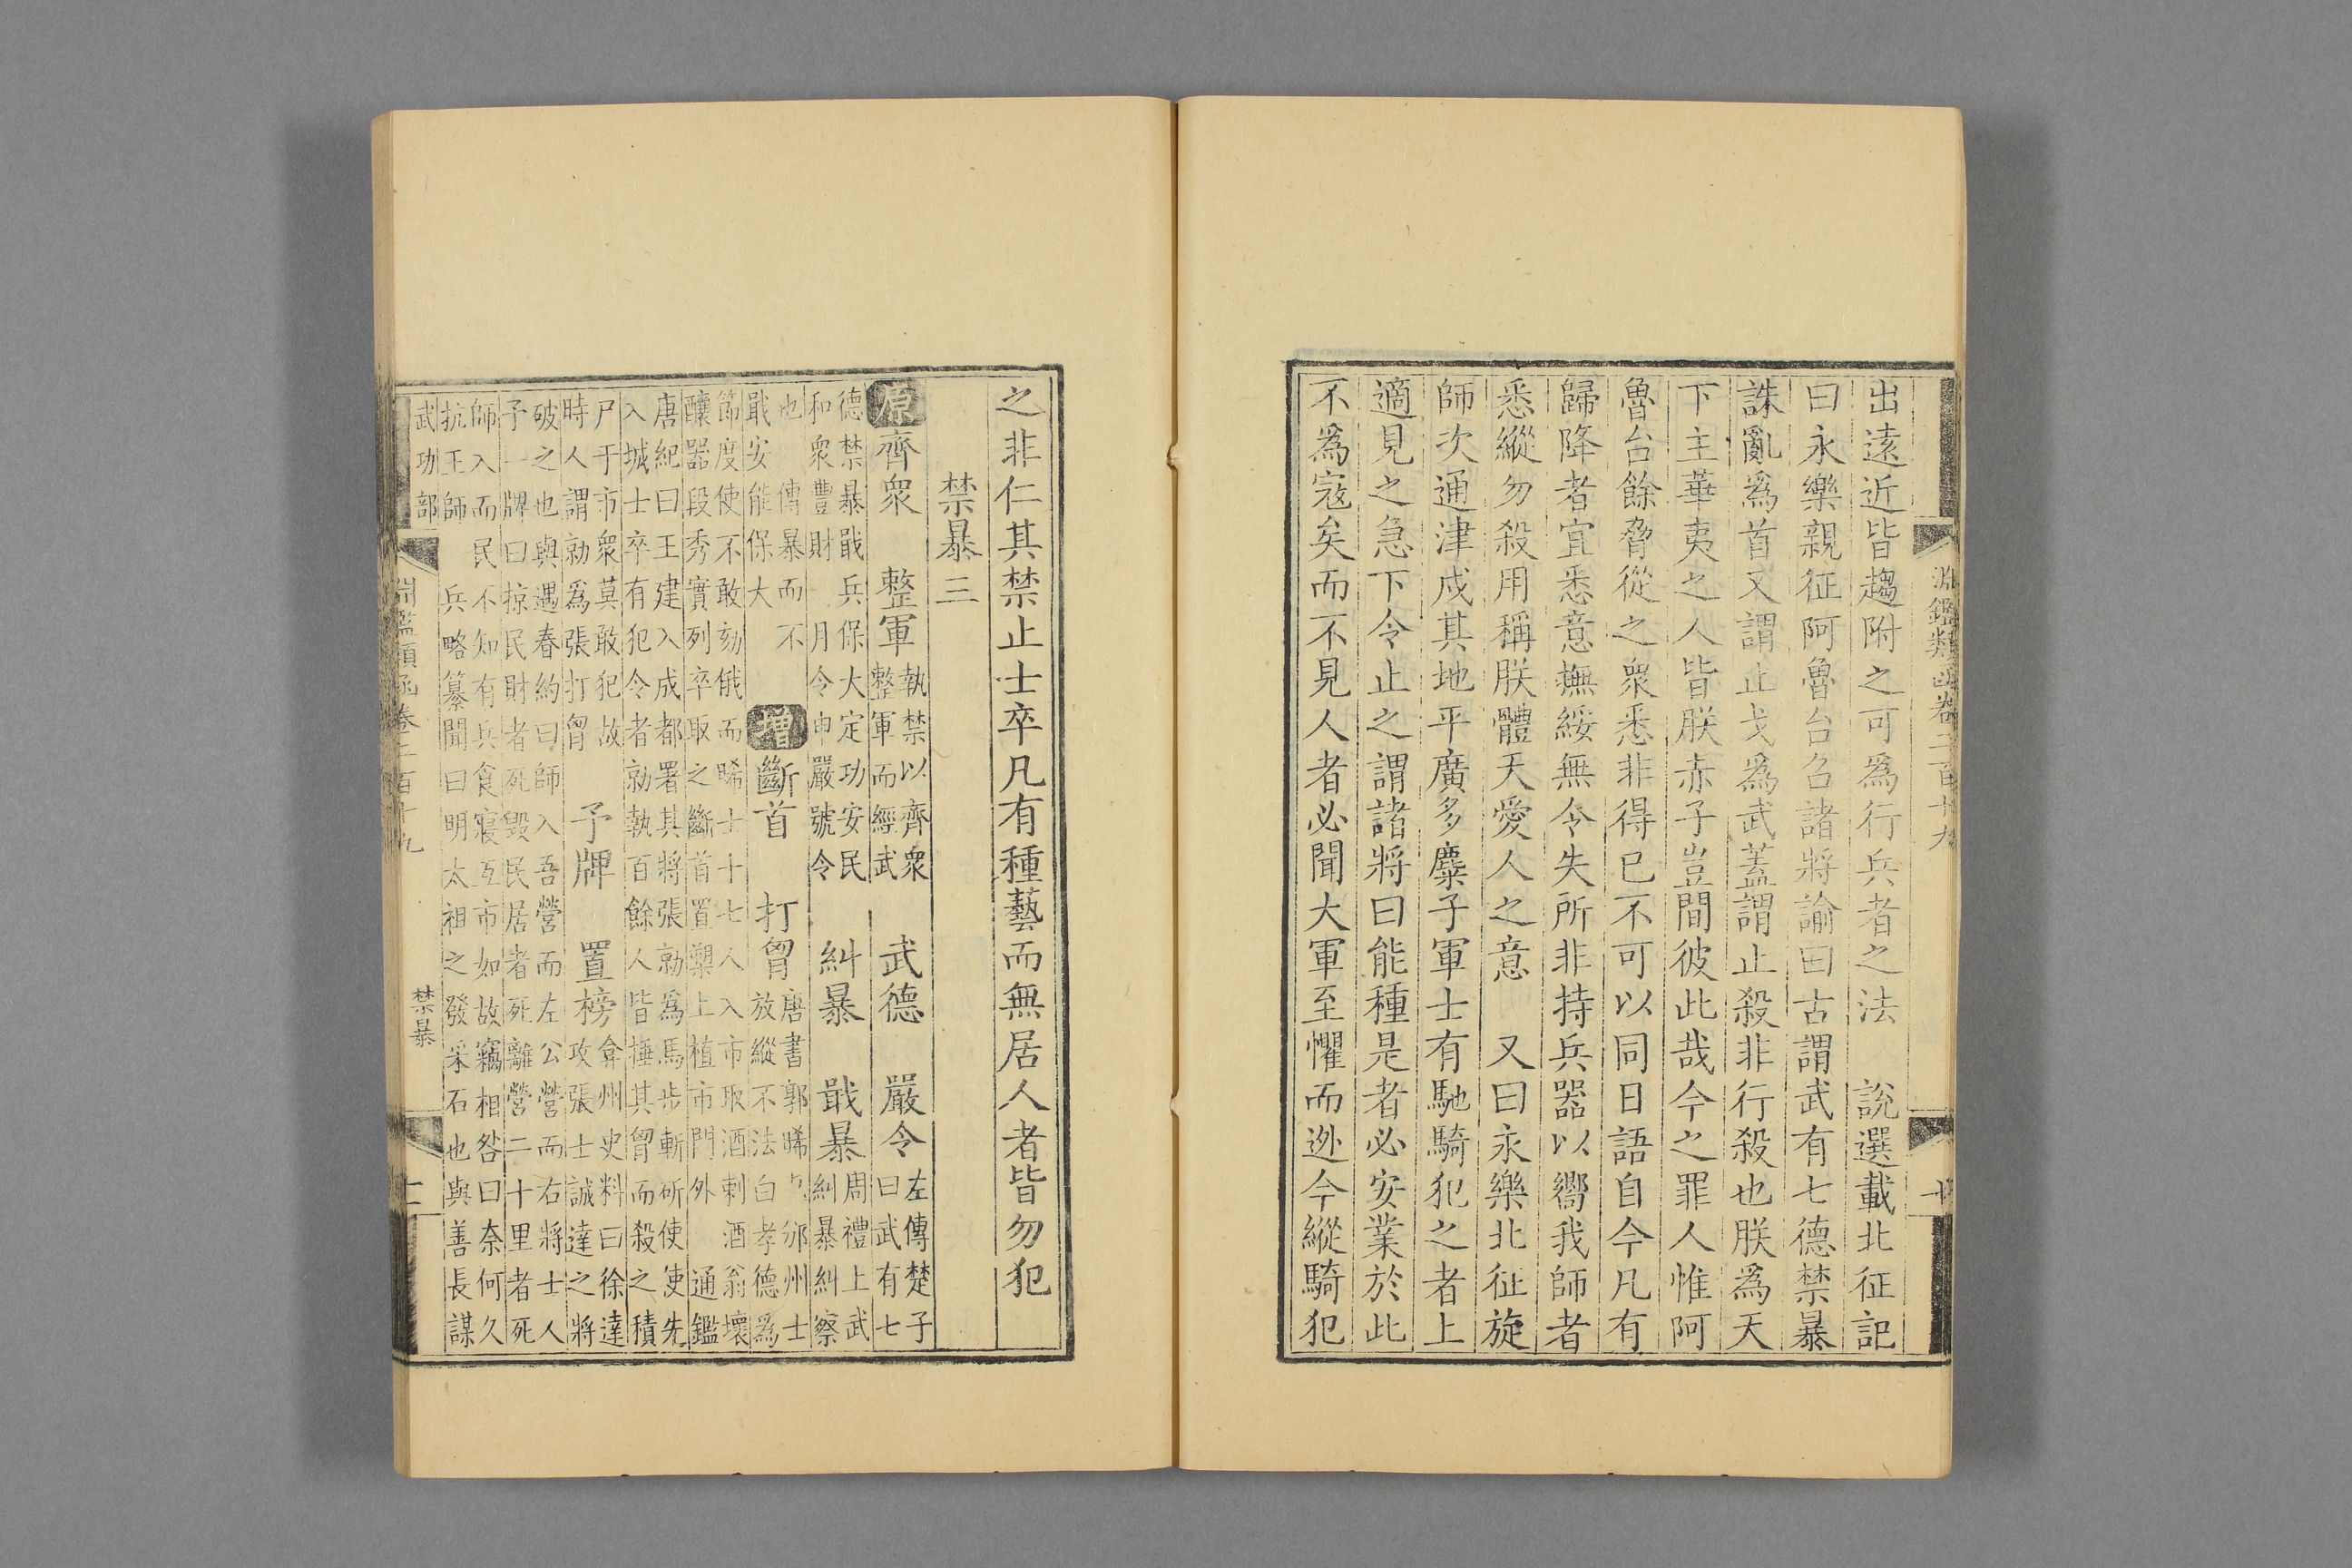 淵鑑類函卷二百十九
十
出遠近皆趨附之可爲行兵者之法　說選載北征記
曰永樂親征阿魯台召諸將諭曰古謂武有七德禁暴
誅亂爲首又謂止戈爲武蓋謂止殺非行殺也朕爲天
下主華夷之人皆朕赤子豈間彼此哉今之罪人惟阿
魯台餘脅從之衆悉非得已不可以同日語自今凡有
歸降者宜悉意撫綏無令失所非持兵器以嚮我師者
悉縱勿殺用稱朕體天愛人之意　又曰永樂北征旋
師次通津戍其地平廣多麋子軍士有馳騎犯之者上
適見之急下令止之謂諸將曰能種是者必安業於此
不爲寇矣而不見人者必聞大軍至懼而迯今縱騎犯
之非仁其禁止士卒凡有種藝而無居人者皆勿犯
禁暴三
原齊衆　整軍
執禁以齊衆
整軍而經武
武德　嚴令
左傳楚子
曰武有七
德禁暴戢兵保大定功安民
和衆豐財　月令申嚴號令
糾暴　戢暴
周禮上武
糾暴糾察
也　傳暴而不
戢安能保大
增斷首　打胷
唐書郭晞　邠州士
放縱不法白孝德爲
節度使不敢劾俄而晞士十七人入市取酒刺酒翁壞
釀器段秀實列卒取之斷首置槊上植市門外　通鑑
唐紀曰王建入成都署其將張勍爲馬步斬斫使使先
入城士卒有犯令者勍執百餘人皆捶其胷而殺之積
尸于市衆莫敢犯故
時人謂勍爲張打胷
予牌　置榜
弇州史料曰徐達
攻張士誠達之將
破之也與遇春約曰師入吾營而左公營而右將士人
予一牌曰掠民財者死毀民居者死離營二十里者死
師入而民不知有兵食寢互市如故竊相咎曰奈何久
抗王師　兵略纂聞曰明太祖之發采石也與善長謀
武功部
淵鑑類函卷二百十九
禁暴